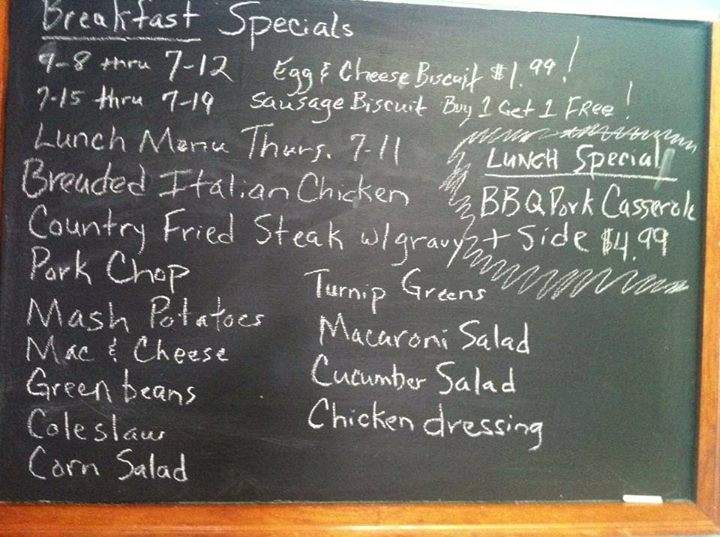 Breakfast Specials
7-8 thru 7-12 Egg & Cheese Biscuit $1.99!
7-15 thru 7-19 Sausage Biscuit Buy 1 Get 1 Free!
Lunch Menu Thurs. 7-11
Breaded Italian Chicken
Country Fried Steak w/gravy
Pork Chop
Mash Potatoes
Mac & Cheese
Green beans
Coleslaw
Corn Salad
Turnip Greens
Macaroni Salad
Cucumber Salad
Chicken dressing
LUNCH Special
BBQ Pork Casserole
+ Side $4.99